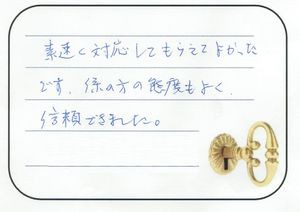 素速く対応してもらえてよかった
です。係の方の態度もよく、
信頼できました。